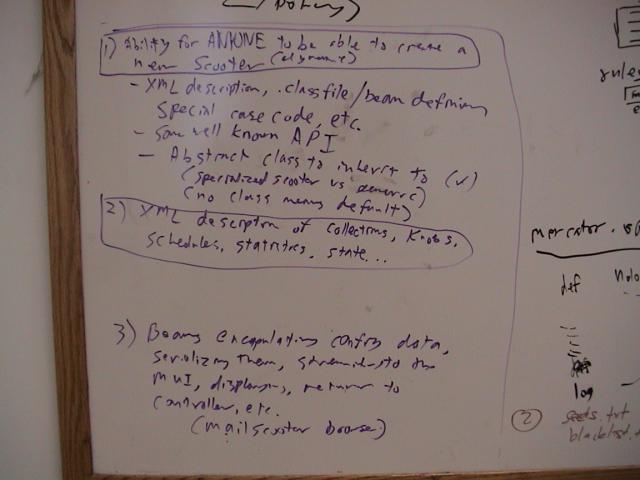 1) Ability for ANYONE to be able to create a
new Scooter (dynamic)
- XML description, .class file/beam defining
special case code, etc.
- some well known API
- Abstract class to inherit to (✓)
(specialized scooter vs generic)
(no class means default)
2) XML description of collections, knobs,
schedules, statistics, state...
3) Beans encapsulating config data,
serializing them, streaming to the
MUI, displaying, return to
controller, etc.
(mailscooter browser)
rules
mercator.
def
log
2 seeds.txt
blacklist.